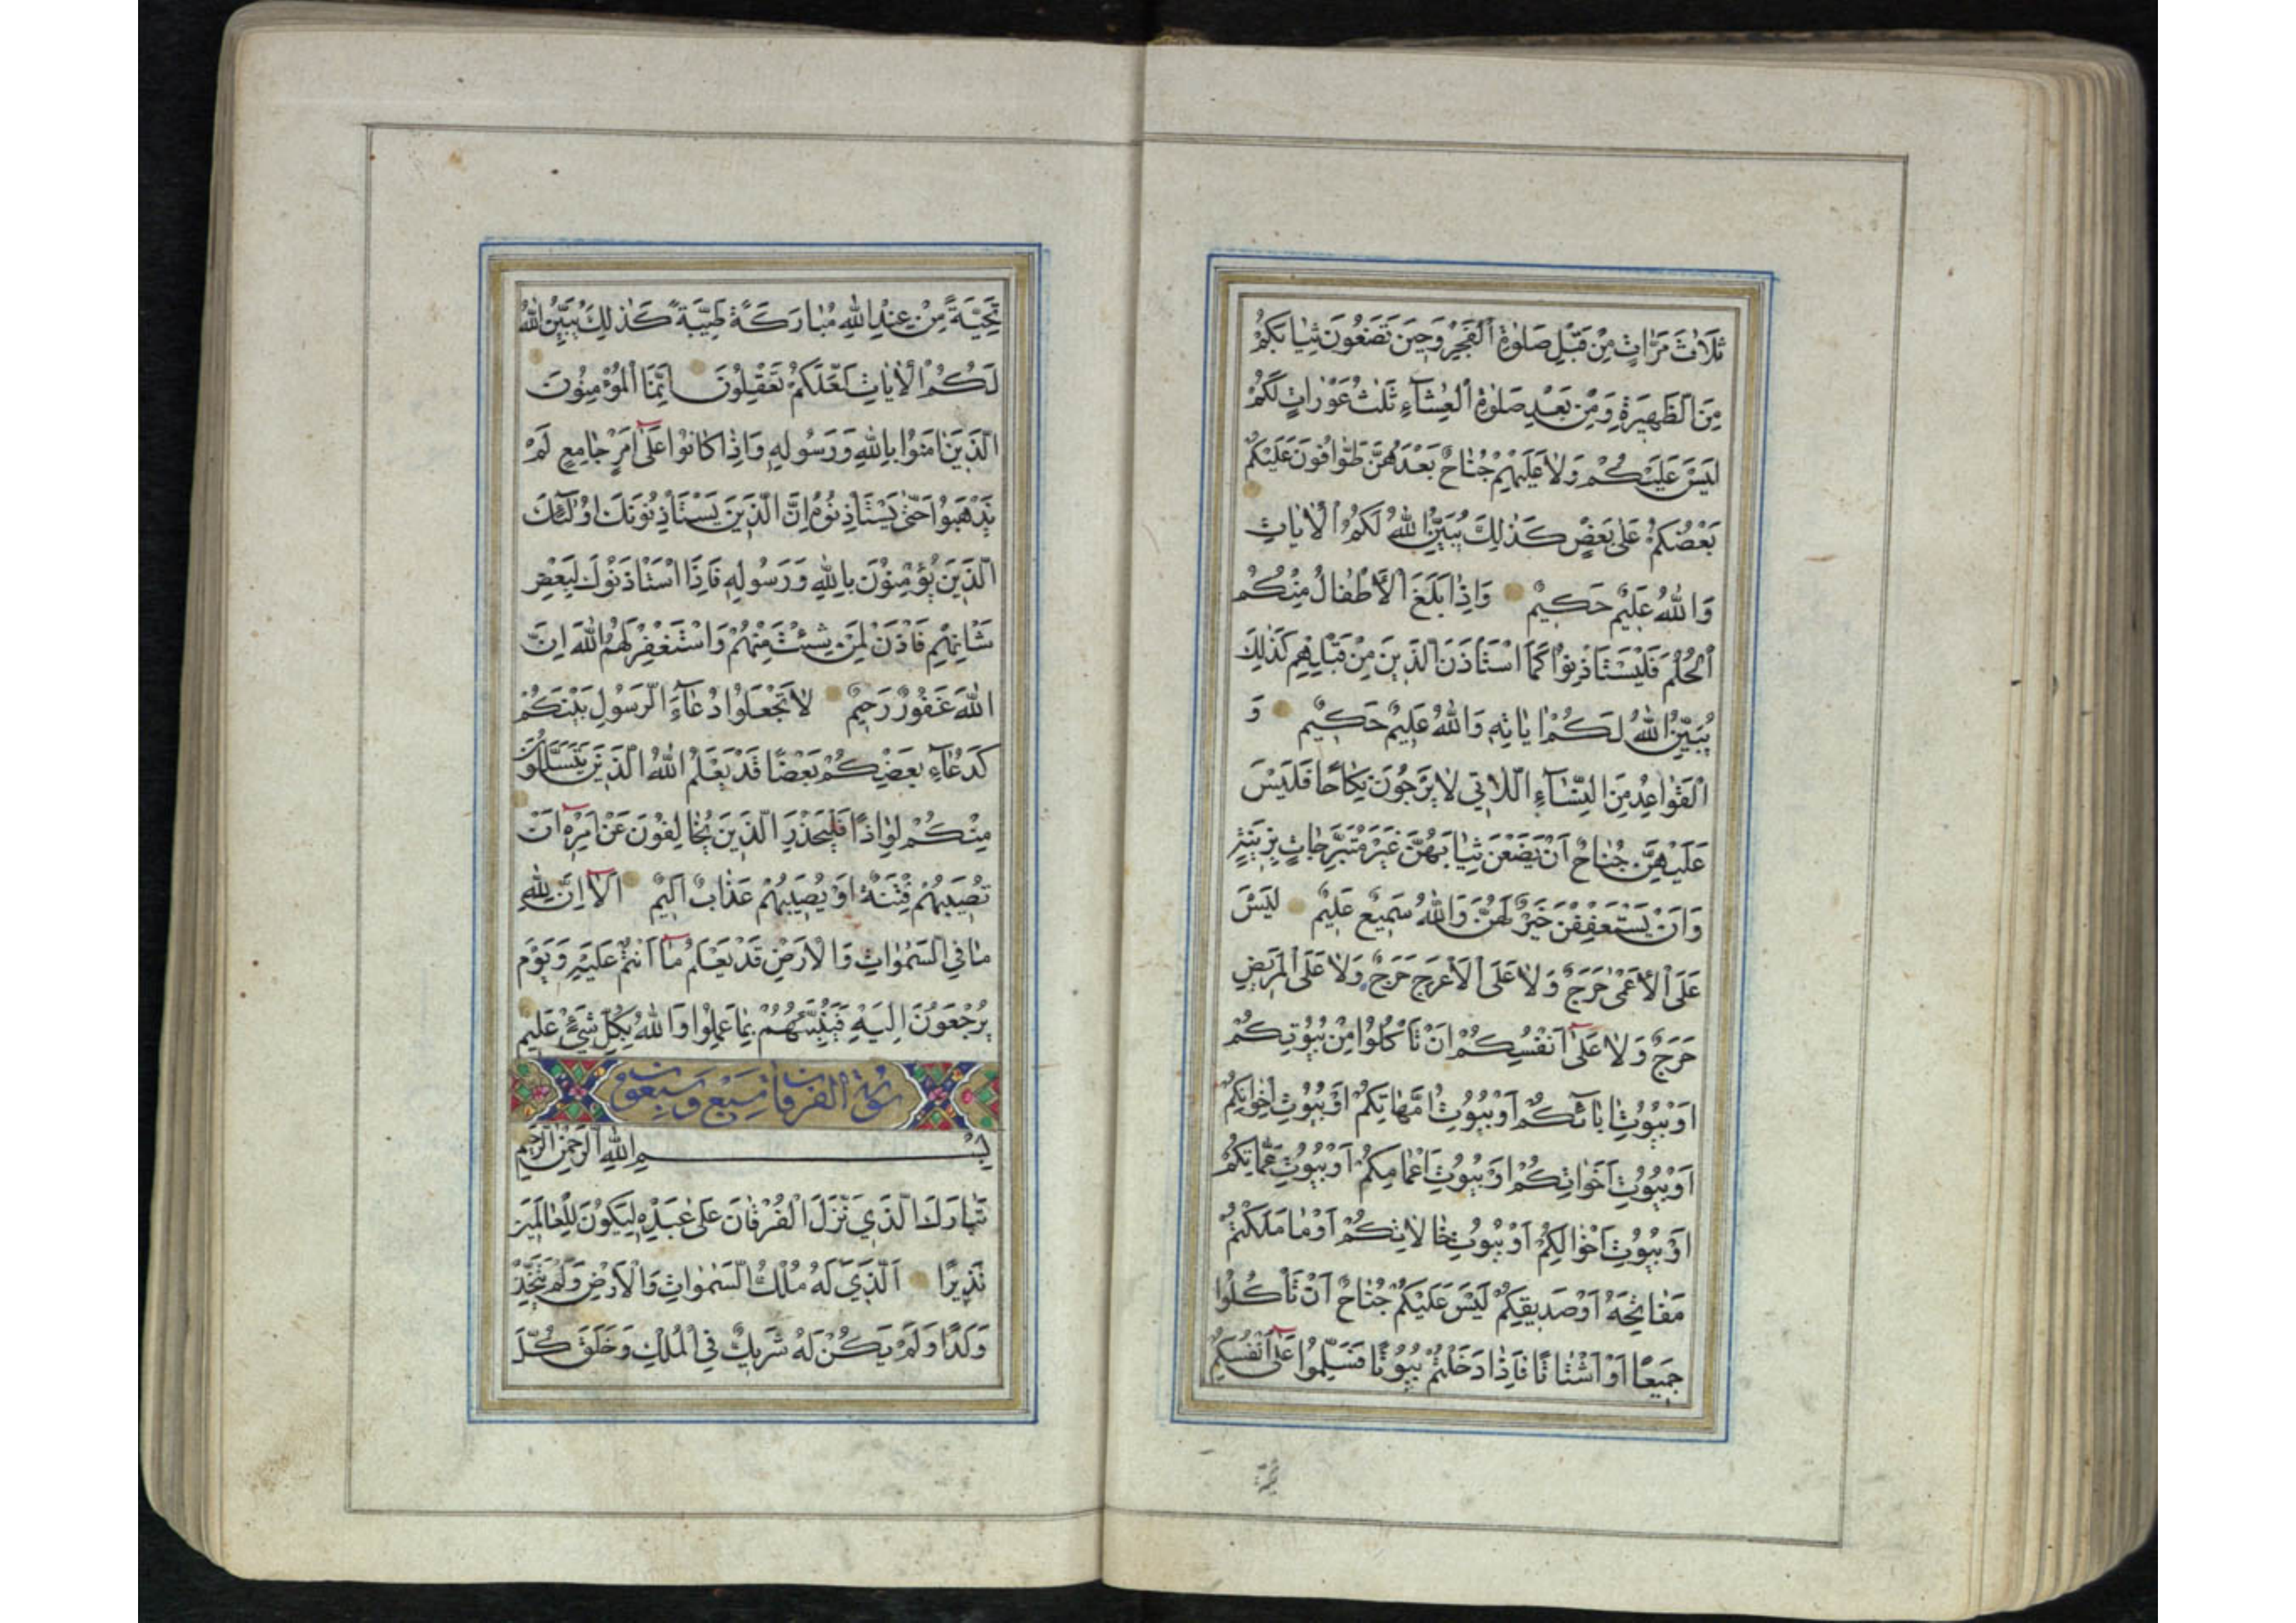 ثَلَاثَ مَرَّاتٍ مِنْ قَبْلِ صَلٰوةِ الْفَجْرِ وَحِينَ تَضَعُونَ ثِيَابَكُمْ
مِنَ الظَّهِيرَةِ وَمِنْ بَعْدِ صَلٰوةِ الْعِشَآءِ ثَلٰثُ عَوْرَاتٍ لَكُمْ
لَيْسَ عَلَيْكُمْ وَلَا عَلَيْهِمْ جُنَاحٌ بَعْدَهُنَّ طَوَّافُونَ عَلَيْكُمْ
بَعْضُكُمْ عَلٰى بَعْضٍ كَذٰلِكَ يُبَيِّنُ اللّٰهُ لَكُمُ الْاٰيَاتِ
وَاللّٰهُ عَلِيمٌ حَكِيمٌ وَاِذَا بَلَغَ الْاَطْفَالُ مِنْكُمُ
الْحُلُمَ فَلْيَسْتَأْذِنُوا كَمَا اسْتَأْذَنَ الَّذِينَ مِنْ قَبْلِهِمْ كَذٰلِكَ
يُبَيِّنُ اللّٰهُ لَكُمْ اٰيَاتِهِ وَاللّٰهُ عَلِيمٌ حَكِيمٌ وَ
الْقَوَاعِدُ مِنَ النِّسَآءِ اللَّاتِي لَا يَرْجُونَ نِكَاحًا فَلَيْسَ
عَلَيْهِنَّ جُنَاحٌ اَنْ يَضَعْنَ ثِيَابَهُنَّ غَيْرَ مُتَبَرِّجَاتٍ بِزِينَةٍ
وَاَنْ يَسْتَعْفِفْنَ خَيْرٌ لَهُنَّ وَاللّٰهُ سَمِيعٌ عَلِيمٌ لَيْسَ
عَلَى الْاَعْمٰى حَرَجٌ وَلَا عَلَى الْاَعْرَجِ حَرَجٌ وَلَا عَلَى الْمَرِيضِ
حَرَجٌ وَلَا عَلٰى اَنْفُسِكُمْ اَنْ تَأْكُلُوا مِنْ بُيُوتِكُمْ
اَوْ بُيُوتِ اٰبَائِكُمْ اَوْ بُيُوتِ اُمَّهَاتِكُمْ اَوْ بُيُوتِ اِخْوَانِكُمْ
اَوْ بُيُوتِ اَخَوَاتِكُمْ اَوْ بُيُوتِ اَعْمَامِكُمْ اَوْ بُيُوتِ عَمَّاتِكُمْ
اَوْ بُيُوتِ اَخْوَالِكُمْ اَوْ بُيُوتِ خَالَاتِكُمْ اَوْ مَا مَلَكْتُمْ
مَفَاتِحَهُ اَوْ صَدِيقِكُمْ لَيْسَ عَلَيْكُمْ جُنَاحٌ اَنْ تَأْكُلُوا
جَمِيعًا اَوْ اَشْتَاتًا فَاِذَا دَخَلْتُمْ بُيُوتًا فَسَلِّمُوا عَلٰى اَنْفُسِكُمْ
تَحِيَّةً مِنْ عِنْدِ اللّٰهِ مُبَارَكَةً طَيِّبَةً كَذٰلِكَ يُبَيِّنُ اللّٰهُ
لَكُمُ الْاٰيَاتِ لَعَلَّكُمْ تَعْقِلُونَ اِنَّمَا الْمُؤْمِنُونَ
الَّذِينَ اٰمَنُوا بِاللّٰهِ وَرَسُولِهِ وَاِذَا كَانُوا عَلٰى اَمْرٍ جَامِعٍ لَمْ
يَذْهَبُوا حَتّٰى يَسْتَأْذِنُوهُ اِنَّ الَّذِينَ يَسْتَأْذِنُونَكَ اُولٰٓئِكَ
الَّذِينَ يُؤْمِنُونَ بِاللّٰهِ وَرَسُولِهِ فَاِذَا اسْتَأْذَنُوكَ لِبَعْضِ
شَأْنِهِمْ فَأْذَنْ لِمَنْ شِئْتَ مِنْهُمْ وَاسْتَغْفِرْ لَهُمُ اللّٰهَ اِنَّ
اللّٰهَ غَفُورٌ رَحِيمٌ لَا تَجْعَلُوا دُعَآءَ الرَّسُولِ بَيْنَكُمْ
كَدُعَآءِ بَعْضِكُمْ بَعْضًا قَدْ يَعْلَمُ اللّٰهُ الَّذِينَ يَتَسَلَّلُونَ
مِنْكُمْ لِوَاذًا فَلْيَحْذَرِ الَّذِينَ يُخَالِفُونَ عَنْ اَمْرِهِ اَنْ
تُصِيبَهُمْ فِتْنَةٌ اَوْ يُصِيبَهُمْ عَذَابٌ اَلِيمٌ اَلَا اِنَّ لِلّٰهِ
مَا فِي السَّمٰوَاتِ وَالْاَرْضِ قَدْ يَعْلَمُ مَا اَنْتُمْ عَلَيْهِ وَيَوْمَ
يُرْجَعُونَ اِلَيْهِ فَيُنَبِّئُهُمْ بِمَا عَمِلُوا وَاللّٰهُ بِكُلِّ شَيْءٍ عَلِيمٌ
سورة الفرقان سبع وسبعون
بِسْمِ اللّٰهِ الرَّحْمٰنِ الرَّحِيمِ
تَبَارَكَ الَّذِي نَزَّلَ الْفُرْقَانَ عَلٰى عَبْدِهِ لِيَكُونَ لِلْعَالَمِينَ
نَذِيرًا اَلَّذِي لَهُ مُلْكُ السَّمٰوَاتِ وَالْاَرْضِ وَلَمْ يَتَّخِذْ
وَلَدًا وَلَمْ يَكُنْ لَهُ شَرِيكٌ فِي الْمُلْكِ وَخَلَقَ كُلَّ